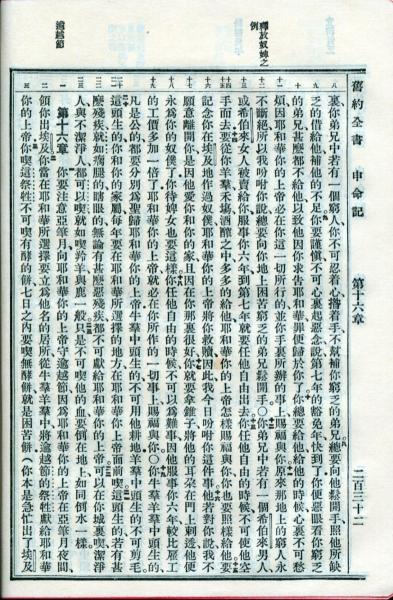 釋放奴婢之
例
逾越節
舊約全書 申命記 第十六章 二百三十二
八 裏你弟兄中若有一個窮人你不可忍着心攥着手不幫補你窮乏的弟兄總要向他鬆開手照他所缺
九 乏的借給他補他的不足你要謹慎不可心裏起惡念說第七年的豁免年快到了你便惡眼看你窮乏
十 的弟兄甚麼都不給他以致他因你求告耶和華罪便歸於你了你總要給他給他的時候心裏不可愁
十一 煩因耶和華你的上帝必在你這一切所行的並你手裏所辦的事上賜福與你原來那地上的窮人永
十二 不斷絕所以我吩咐你說總要向你地上困苦窮乏的弟兄鬆開手○你弟兄中若有一個希伯來男人
十三 或希伯來女人被賣給你服事你六年到第七年就要任他自由出去你任他自由的時候不可使他空
十四 手而去要從你羊羣禾場酒醡之中多多的給他耶和華你的上帝怎樣賜福與你你也要照樣給他要
十六 記念你在埃及地作過奴僕耶和華你的上帝將你救贖因此我今日吩咐你這件事他若對你說我不
十七 願意離開你是因他愛你和你的家且因在你那裏很好你就要拿錐子將他的耳朵在門上刺透他便
十八 永為你的奴僕了你待婢女也要這樣你任他自由的時候不可以為難事因他服事你六年較比雇工
十九 的工價多加一倍了耶和華你的上帝就必在你所作的一切事上賜福與你○你牛羣羊羣中頭生的
凡是公的都要分別為聖歸耶和華你的上帝牛羣中頭生的不可用他耕地羊羣中頭生的不可剪毛
這頭生的你和你的家屬每年要在耶和華所選擇的地方在耶和華你的上帝面前喫這頭生的若有甚
麼殘疾就如瘸腿的瞎眼的無論有甚麼惡殘疾都不可獻給耶和華你的上帝可以在你城裏喫潔淨
人與不潔淨人都可以喫就如喫羚羊與鹿一般只是不可喫他的血要倒在地上如同倒水一樣
一 第十六章 你要注意亞筆月向耶和華你的上帝守逾越節因為耶和華你的上帝在亞筆月夜間
二 領你出埃及你當在耶和華所選擇要立為他名的居所從牛羣羊羣中將逾越節的祭牲獻給耶和華
三 你的上帝你喫這祭牲不可喫有酵的餅七日之內要喫無酵餅就是困苦餅你本是急忙出了埃及